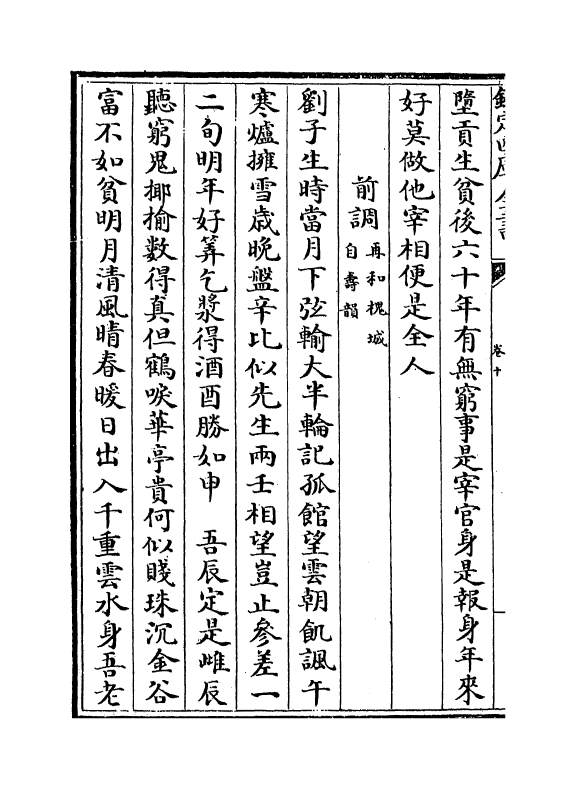 欽定四庫全書
卷十
墮貢生貧後六十年有無窮事是宰官身是報身年來
好莫做他宰相便是全人
前調
再和槐城
自壽韻
劉子生時當月下弦輸大半輪記孤館望雲朝飢諷午
寒爐擁雪歳晚鹽辛比似先生兩壬相望豈止參差一
二旬明年好筭乞漿得酒酉勝如申　吾辰定是雌辰
聽窮鬼揶揄數得真但鶴唳華亭貴何似賤珠沉金谷
富不如貧明月清風晴春暖日出入千重雲水身吾老